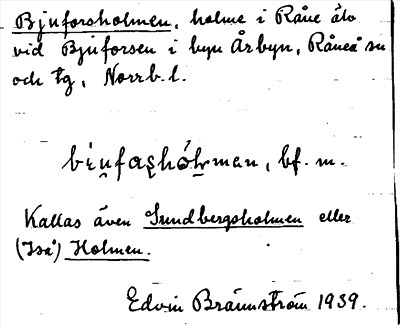 Bjuforsholmen, holme i Råne älv
vid Bjuforsen i byn Årbyn, Råneå sn
och tg, Norrb. l.
bi̯ufaʂhólman, bf. m.
Kallas även Sundbergsholmen eller
Holmen.
Edvin Brännström 1939.